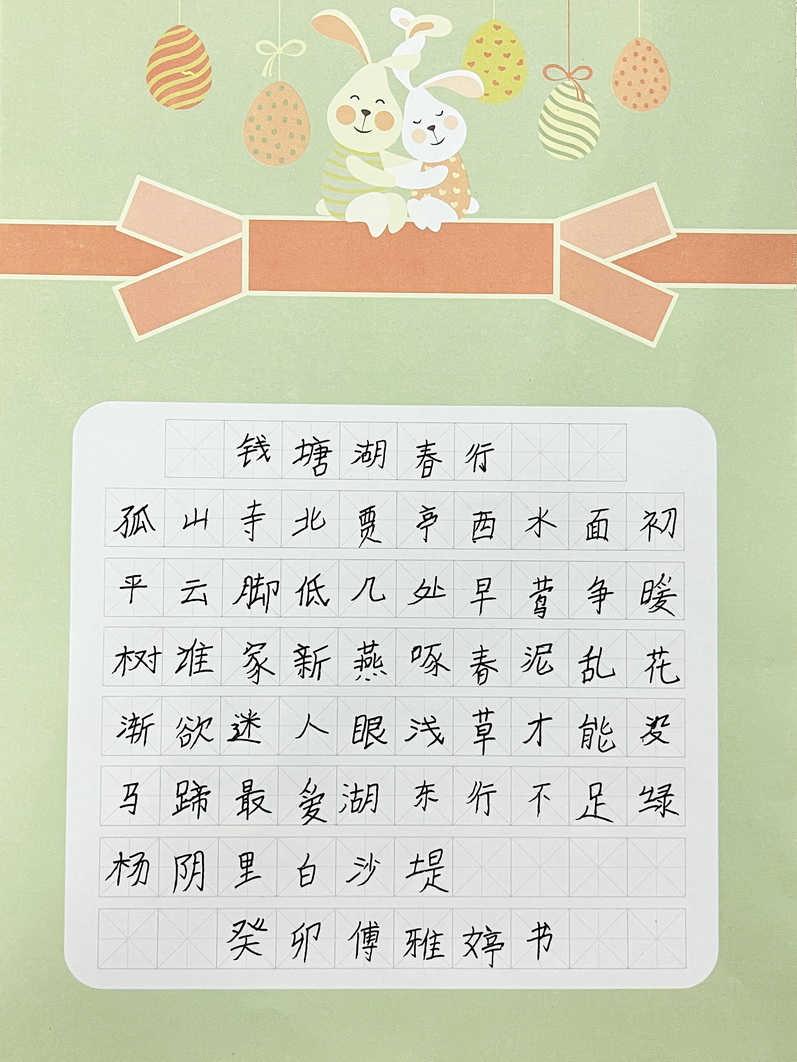 钱塘湖春行
孤山寺北贾亭西水面初
平云脚低几处早莺争暖
树谁家新燕啄春泥乱花
渐欲迷人眼浅草才能没
马蹄最爱湖东行不足绿
杨阴里白沙堤
癸卯傅雅婷书